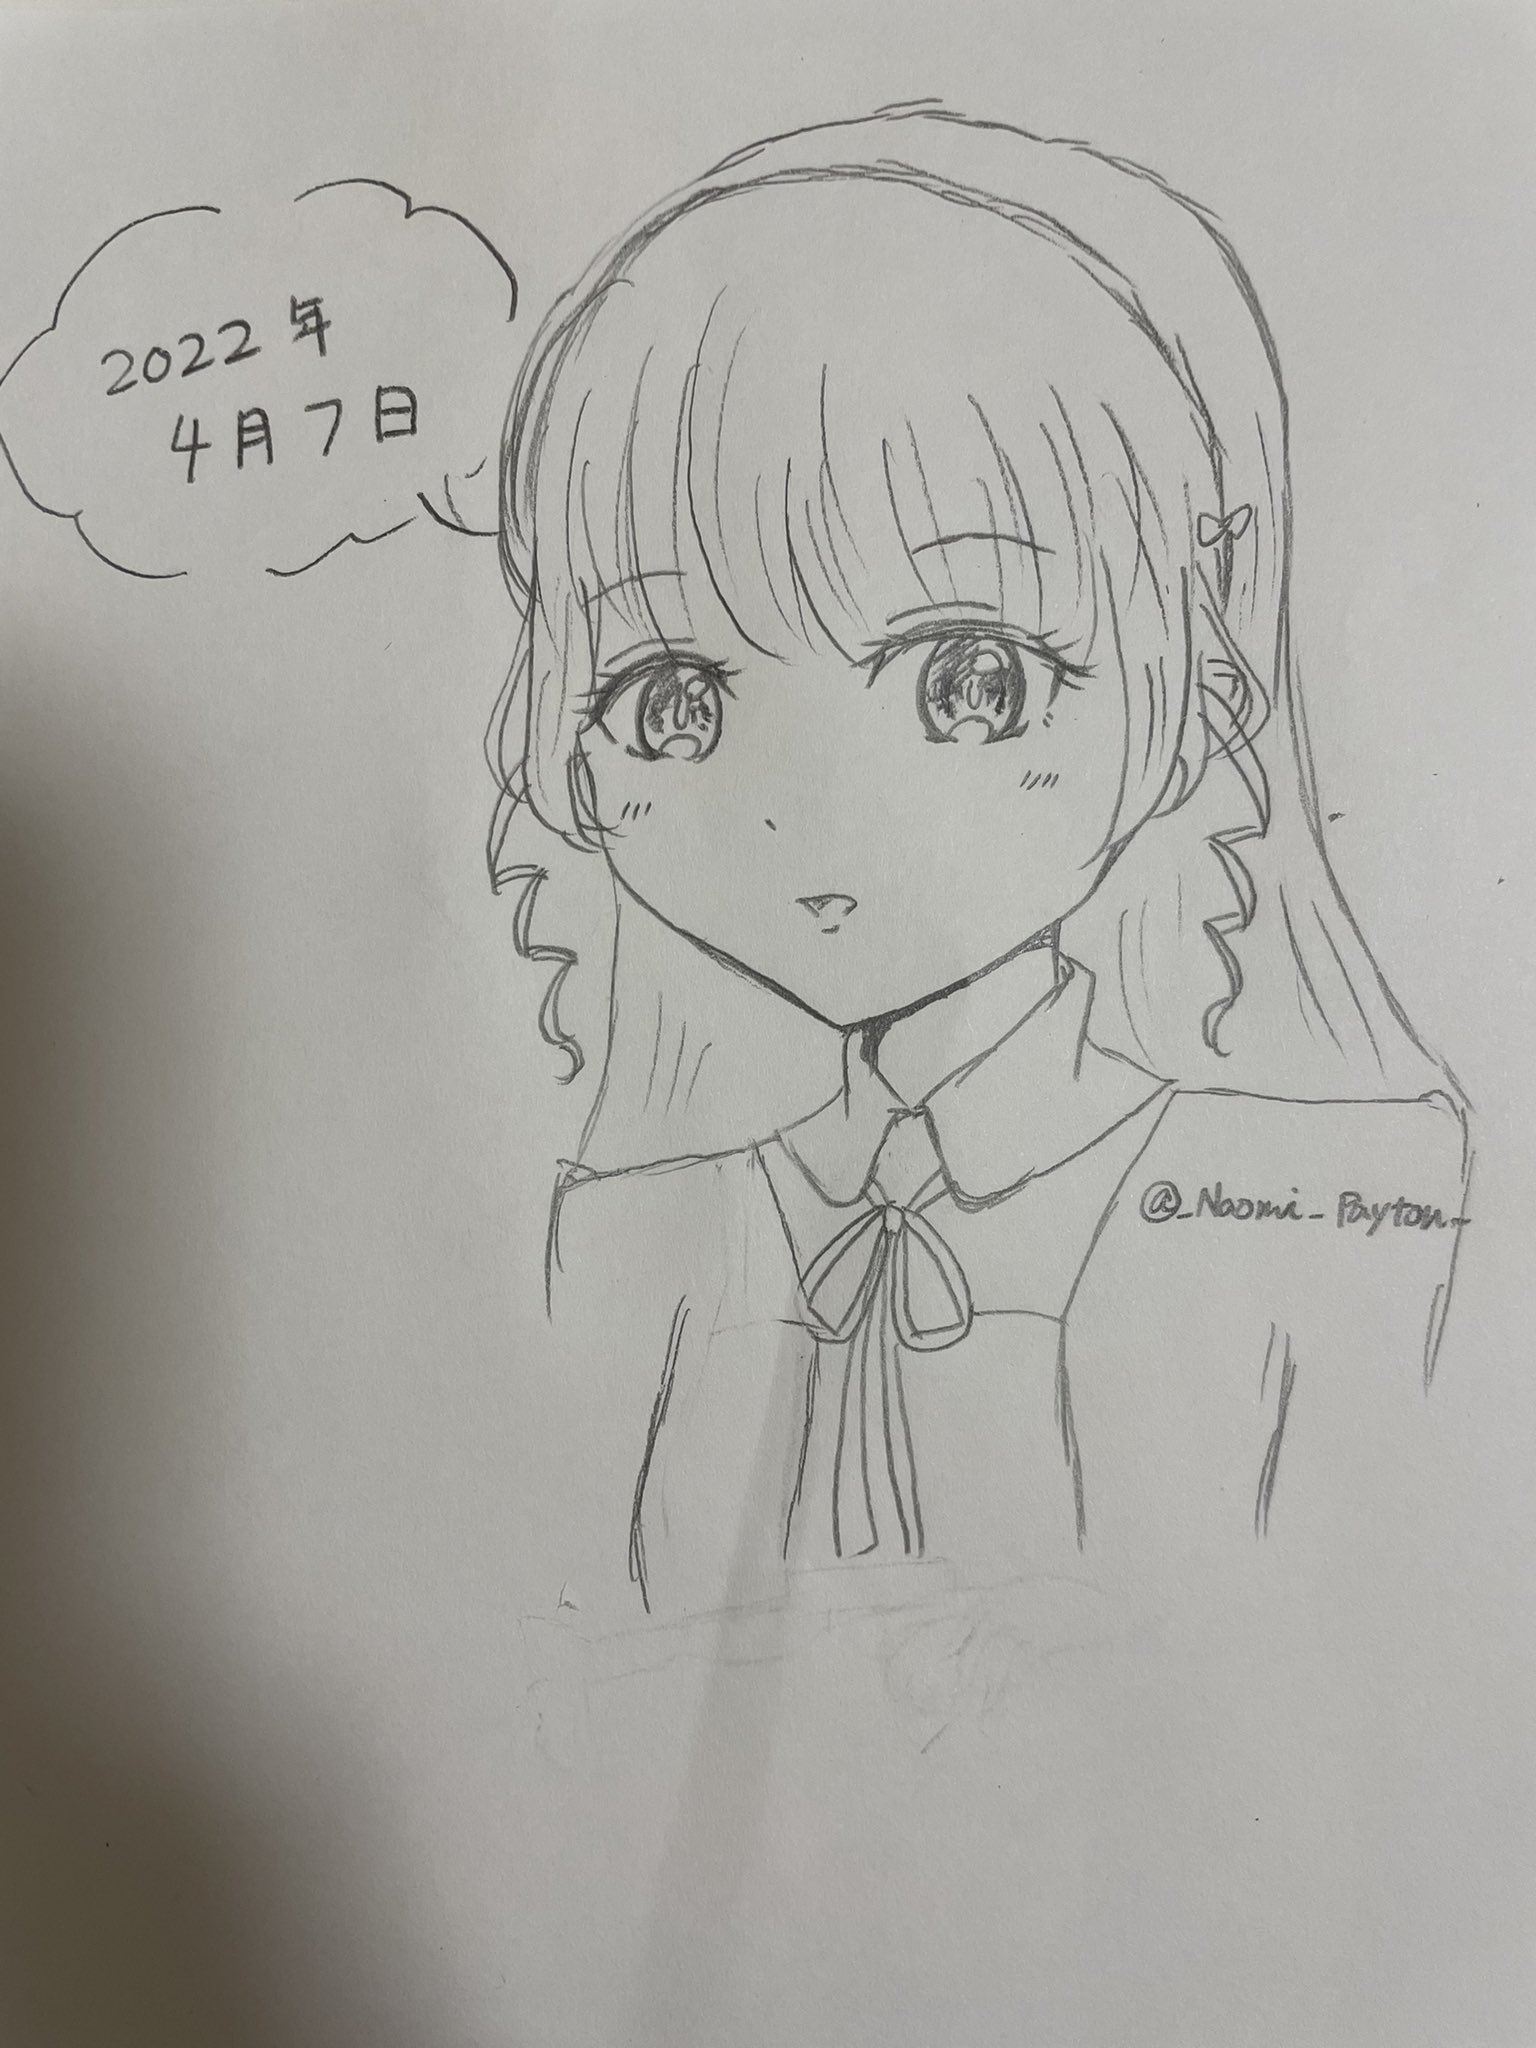 2022年
4月7日
@_Naomi_Payton_